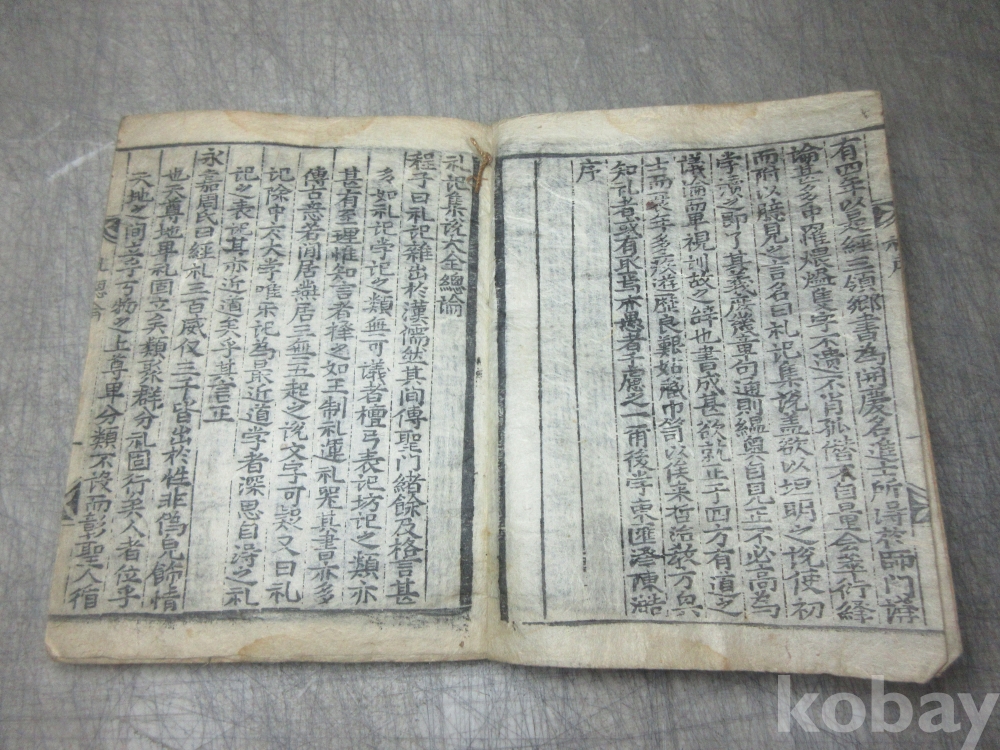 有四年以是經三領鄉書為開慶名進士所得於師門講
論甚多中罹煨燼隻字不遺不肖孤僭不自量会萃衍繹
而附以臆見之言名曰礼記集說盖欲以坦明之說使初
学讀之即了其義庶幾章句通則縕奥自見正不必高為
議論而卑視訓故之辞也書成甚欲就正于四方有道之
士而年多疾遊歷良艱姑藏巾笥以俟来哲治教方興
知礼者或有取焉亦愚者千慮之一爾後学東匯澤陳澔
序
礼記集說大全總論
程子曰礼記雜出於漢儒然其間傳聖門緒餘及格言甚
多如礼記学記之類無可議者檀弓表記坊記之類亦
甚有至理惟知言者擇之如王制礼運礼器其書亦多
傳古意若閒居燕居三無五起之說文字可疑又曰礼
記除中庸大学唯乐記為最近道学者深思自得之礼
記之表記其亦近道矣乎其言正
永嘉周氏曰經礼三百威仪三千皆出於性非偽皃飾情
也天尊地卑礼固立矣類聚群分礼固行矣人者位乎
天地之間立于万物之上尊卑分類不設而彰聖人循
kobay